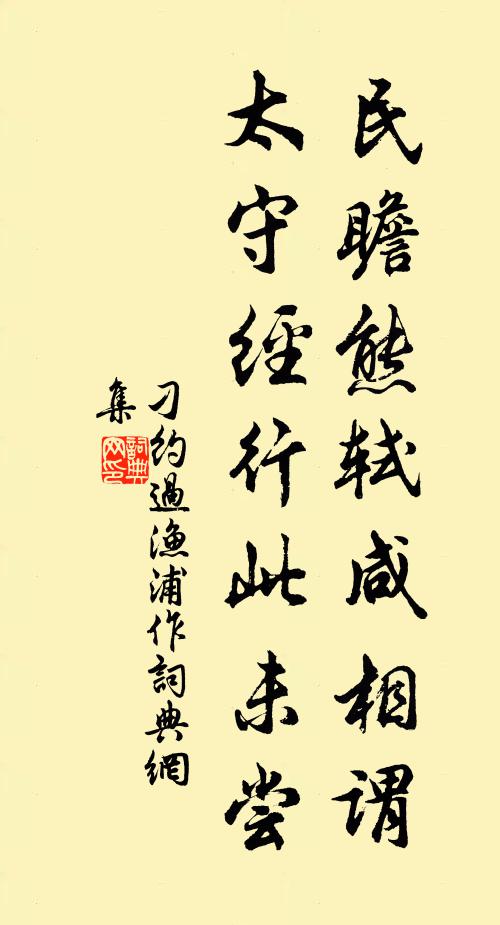 民瞻熊轼咸相謂
太守經行此未尝
刁約過漁浦作詞典網
集
詞典网印